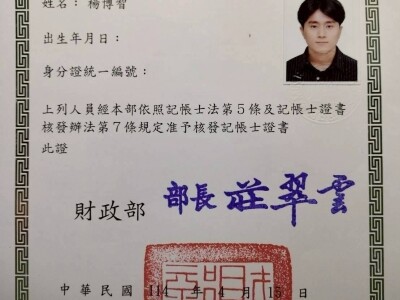 姓名：楊博智
出生年月日：
身分證統一編號：
上列人員經本部依照記帳士法第5條及記帳士證書
核發辦法第7條規定准予核發記帳士證書
此證
財政部 部長 莊翠雲
中華民國 114 年 4 月 15 日